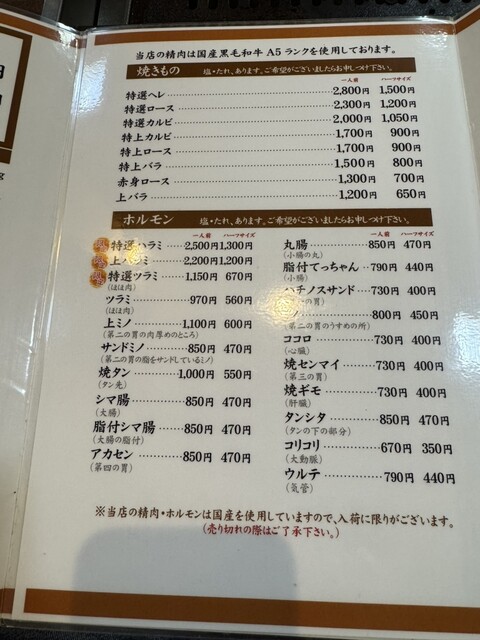 当店の精肉は国産黒毛和牛A5ランクを使用しております。
焼きもの 塩・たれ、あります。ご希望がございましたらお申しつけ下さい。
一人前 ハーフサイズ
特選ヘレ 2,800円 1,500円
特選ロース 2,300円 1,200円
特選カルビ 2,000円 1,050円
特上カルビ 1,700円 900円
特上ロース 1,700円 900円
特上バラ 1,500円 800円
赤身ロース 1,300円 700円
上バラ 1,200円 650円
ホルモン 塩・たれ、あります。ご希望がございましたらお申しつけ下さい。
一人前 ハーフサイズ
特選ハラミ 2,500円 1,300円
上ハラミ 2,200円 1,200円
特選ツラミ 1,150円 670円
(ほほ肉)
ツラミ 970円 560円
(ほほ肉)
上ミノ 1,100円 600円
(第二の胃の肉厚めのところ)
サンドミノ 850円 470円
(第二の胃の脂をサンドしているミノ)
焼タン 1,000円 550円
(タン先)
シマ腸 850円 470円
(大腸)
脂付シマ腸 850円 470円
(大腸の脂付)
アカセン 850円 470円
(第四の胃)
一人前 ハーフサイズ
丸腸 850円 470円
(小腸の丸)
脂付てっちゃん 790円 440円
(小腸)
ハチノスサンド 730円 400円
の胃)
ノ 800円 450円
(第二の胃のうすめの所)
ココロ 730円 400円
(心臓)
焼センマイ 730円 400円
(第三の胃)
焼ギモ 730円 400円
(肝臓)
タンシタ 850円 470円
(タンの下の部分)
コリコリ 670円 350円
(大動脈)
ウルテ 790円 440円
(気管)
※当店の精肉・ホルモンは国産を使用していますので、入荷に限りがございます。
(売り切れの際はご了承下さい。)